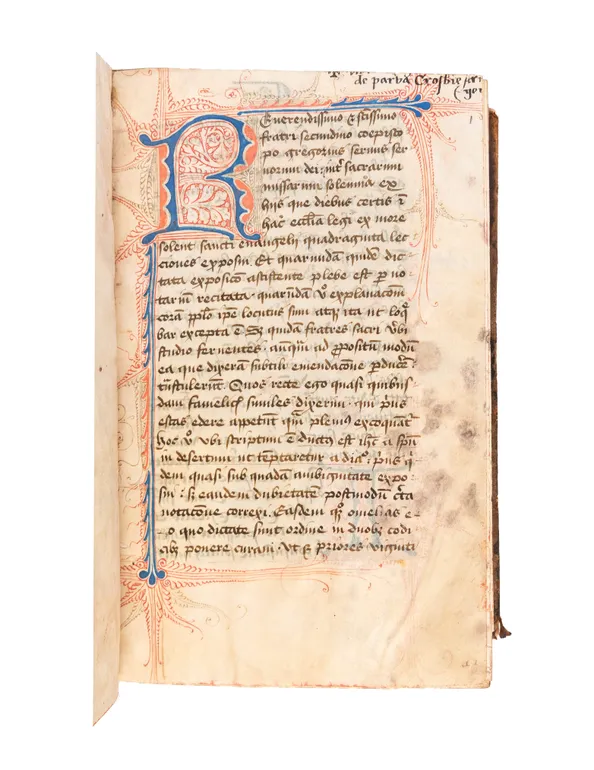 de parva Crosbie
1
Reuerendissimo & sctissimo
fratri secundino coepisco
po gregorius seruus ser
uorum dei int sacrarum
missarum solemnia ex
hiis que diebus certis i
hac ecclia legi ex more
solent sancti euangelii quadraginta lec
ciones exposui. Et quarundam quide dic
tata exposico astistente plebe est p no
tarium recitata quarundam v explanacom
coram pplo ipe locutus sum atq ita ut loq
bar excepta e. Sz quidam fratres sacri vbi
studio feruentes. anteqm ad ppositum modum
ea que dixeram subtili emendacone pducere
tnstulerunt. Quos recte ego quasi quibus
dam famelicis similes dixerim. qui prius
escas edere appetunt qm plenius excoquantur
hoc vo vbi scriptum e ductus est ihc a spu
in desertum ut temptaretur a diabo. prius qi
dem quasi sub quadam ambiguitate expo
sui. si eandem dubietatem postmodum certa
notacone correxi. Easdem quo omelias e
o quo dictate sunt ordine in duobz codi
cibz ponere curaui. Vt & priores viginti